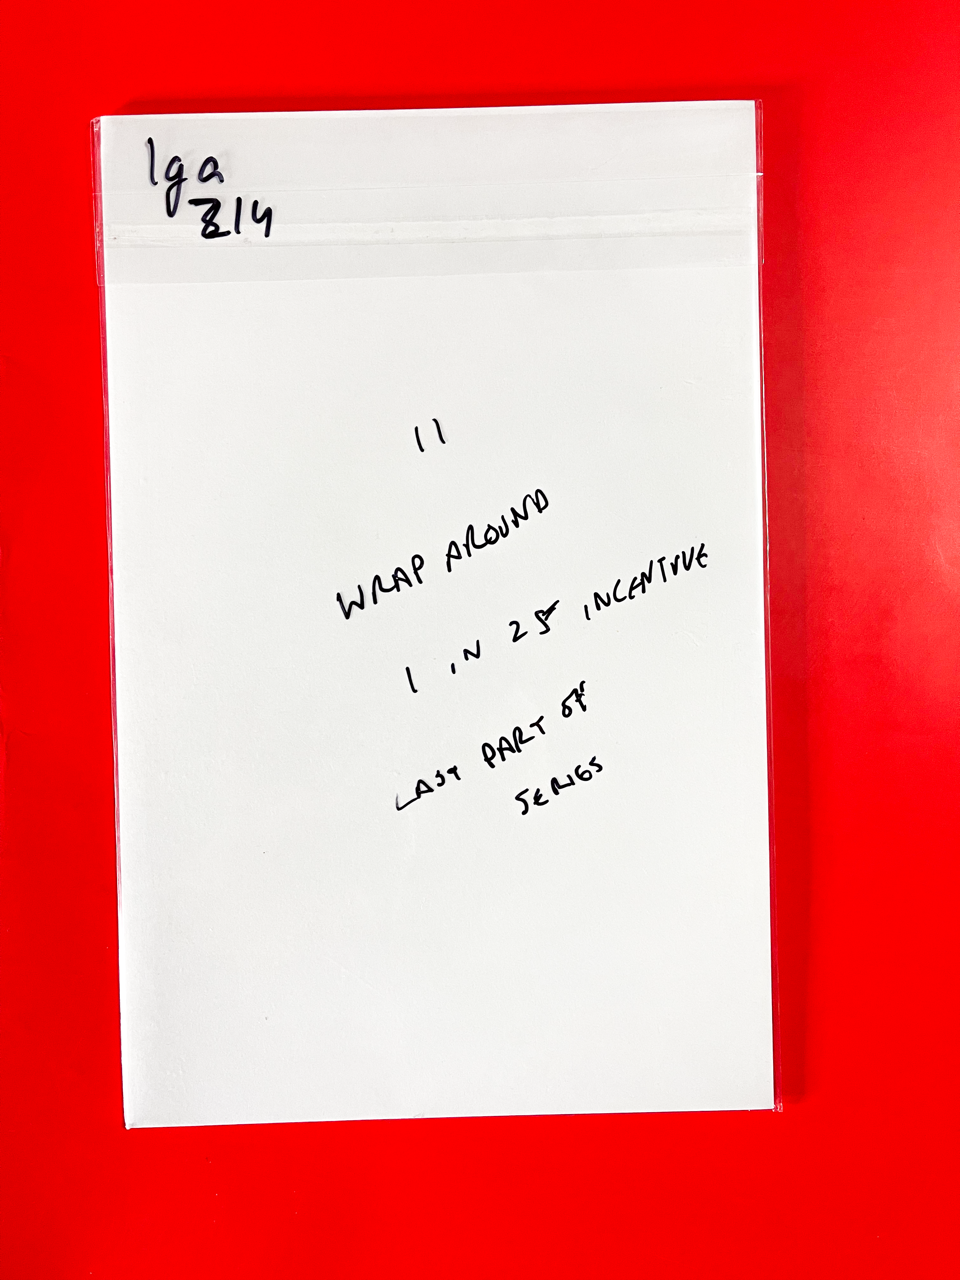 Iga
214
11
WRAP AROUND
1 IN 25 INCENTIVE
LAST PART OF
SERIES